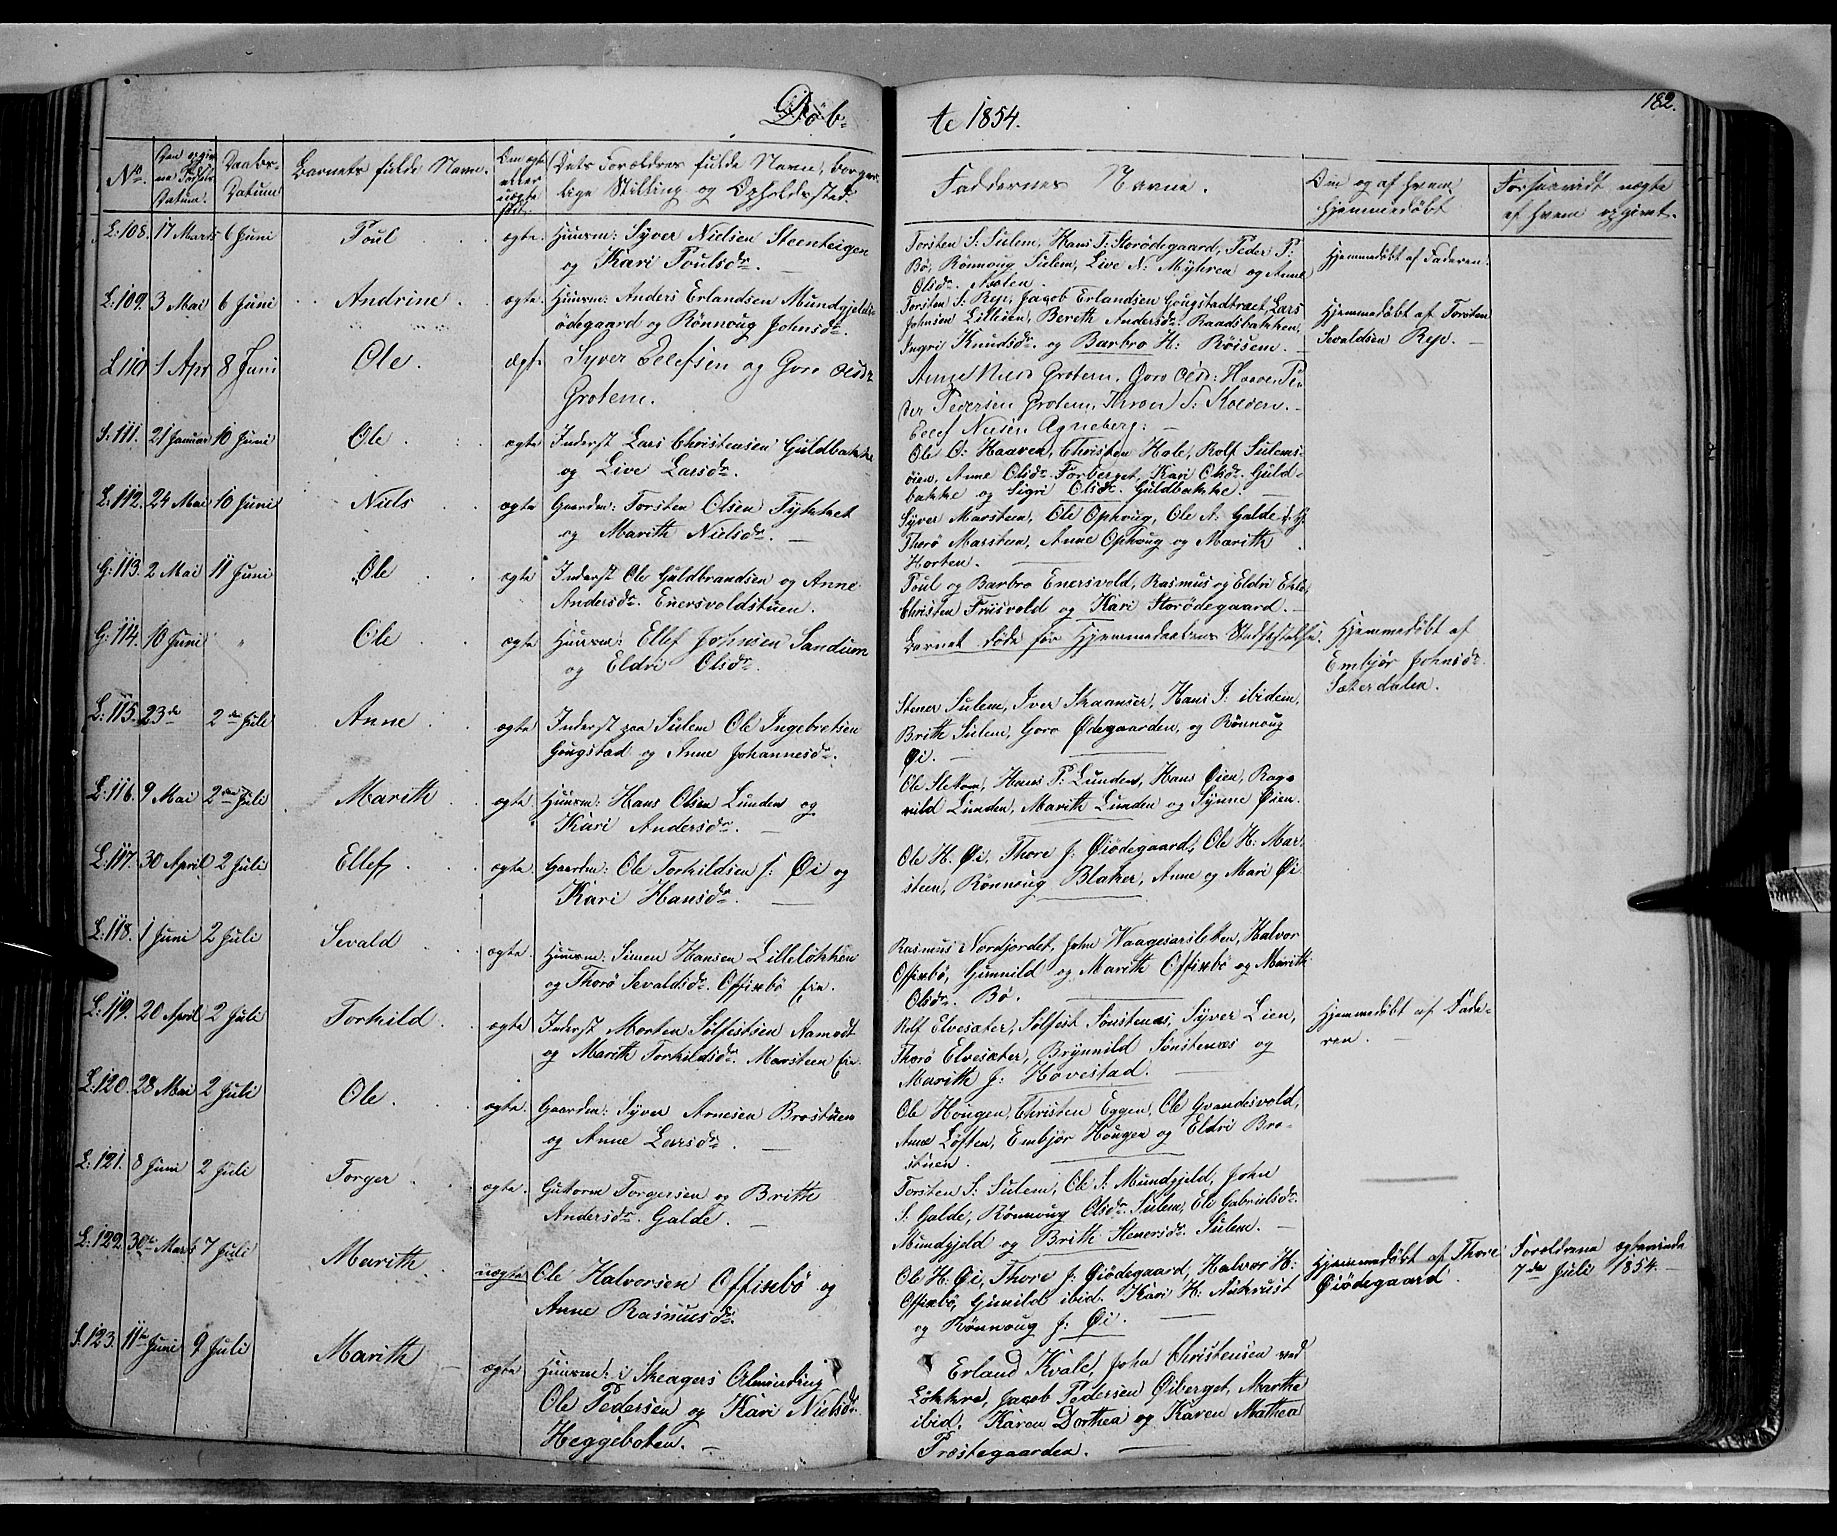 Döb-
te 1854.
182.
No.
Daabs-
Datum
Barnets fulde Navn.
Om ægte
eller
uægte
født.
Dets Forældres fulde Navn, borger-
lige Stilling og Opholdssted.
Faddernes Navne.
Om og af hvem
hjemmedøbt
Forsaavidt uægte
af hvem opgivet.
L: 108. 17 Marts 6 Juni Poul ægte. Huusm: Syver Nielsen Steenteigen
og Kari Poulsdr.
Torsten S: Sulem, Hans T: Storødegaard, Peder P:
Bø, Rønnoug Sulem, Live N: Myhren og Anne
Olsdr.
Hjemmedøbt af Faderen.
L: 109. 3 Mai 6 Juni Andrine ægte Huusm: Anders Erlandsen Mundgjelds-
ødegaard og Rønnoug Johnsdr.
Torsten S: Rep, Jacob Erlandsen Gougstadtræet, Lars
Johnsen Lillien, Bereth Andersdr. Raadsbakken,
Ingri Knudsdr. og Barbro H: Røisem.
Hjemmedøbt af Torsten
Sevaldsen Rep.
L 110 1 Apr 8 Juni Ole ægt. Syver Ellefsen og Goro Olsdr
Grotem.
Anne Grotem, Goro Olsd: Pe-
der Pedersen Grotem, Thron S: Kolden.
Ellef Agneberg:
S: 111. 21 Januar 10 Juni Ole ægte Inderst Lars Christensen Guldbakke
og Live Larsdr.
Ole O: Haaven, Christen Hole, Rolf Sulems-
øien, Anne Olsdr. Forberget, Kari Olsdr. Guld-
bakke og Sigri Olsdr. Guldbakke.
L: 112. 24 Mai 10 Juni Niels ægte Gaardm: Torsten Olsen
og Marith Nielsdr.
Syver Marsteen, Ole Ophoug, Ole A: Galde
Thorø Marsteen, Anne Ophoug og Marith
Horten.
G: 113. 2 Mai 11 Juni Ole ægte Inderst Ole Guldbrandsen og Anne
Andersdr. Enersvoldstuen.
Poul og Barbro Enersvold, Rasmus og Eldri
Christen Friisvold og Kari Storødegaard.
G: 114. 10 Juni " Ole ægte Huusm: Ellef Johnsen Sandum
og Eldri Olsdr.
Barnet døde før Hjemmedaabens Stadfæstelse.
Hjemmedøbt af
Embjør Johnsdr.
Sæterdalen.
L: 115. 23de 2den Juli Anne ægte Inderst paa Sulem Ole Ingebretsen
Gougstad og Anne Johannesdr.
Stener Sulem, Iver Skaanser, Hans I: ibidem,
Brith Sulem, Goro Ødegaarden, og Rønnoug
Øi.
L: 116. 9 Mai 2den Juli Marith ægte Huusm: Hans Olsen Lunden og
Kari Andersdr.
Ole Sletten, Hans P: Lunden, Hans Øien, Rag-
nild Lunden, Marith Lunden og Synne Øien.
L: 117. 30 April 2 Juli Ellef ægte Gaardm: Ole Torkildsen s: Øi og
Kari Hansdr.
Ole H. Øi, Thore J: Øiødegaard, Ole H. Mar-
steen, Rønnoug Blaker, Anne og Mari Øi.
L: 118. 1 Juni 2 Juli Sevald ægte. Huusm: Simen Hansen Lilleløkken
og Thorø Sevaldsdr. Offixbø Eie.
Rasmus Nordjordet, John Vaagesarsletten, Halvor
Offixbø, Gunnild og Marith Offixbø og Marith
Olsdr. Bø.
L: 119. 20 April 2 Juli Torkild ægte Inderst Morten Sølfestsen Aamodt
og Marith Torkildsdr. Marsteen Eie.
Rolf Elvesæter, Sølfest Sønstenæs, Syver Lien,
Thorø Elvesæter, Brynnild Sønstenæs og
Marith J: Hovestad.
Hjemmedøbt af Fade-
ren.
L: 120. 28 Mai 2 Juli Ole ægte Gaardm: Syver Arnesen Brostuen
og Anne Larsdr.
Ole Hougen, Christen Eggen, Ole Grandesvold,
Anne Løften, Embjør Hougen og Eldri Bro-
stuen.
L: 121. 8 Juni 2 Juli Torger ægte Guttorm Torgersen og Brith
Andersdr. Galde.
Torsten S: Sulem, Ole S: Mundgjeld, John
S. Galde, Rønnoug Olsdr. Sulem, Eli Gabrielsdr.
Mundgjeld og Brith Stenersdr. Sulem.
L: 122. 30te Marts 7 Juli Marith uægte Ole Halvorsen Offixbø og
Anne Rasmusdr.
Ole H. Øi, Thore J: Øiødegaard, Halvor H:
Offixbø, Gunild ibid. Kari H: Aukrust
og Rønnoug J: Øi.
Hjemmedøbt af Thore
Øiødegaard.
Forældrene ægteviede
7de Juli 1854.
S: 123. 11te Juni 9 Juli Marith ægte Huusm: i Skeagers Alminding
Ole Pedersen og Kari Nielsdr.
Heggeboten.
Erland Kvale, John Christensen ved
Løkkre, Jacob Pedersen Øiberget, Marthe
ibid. Karen Dorthea og Karen Mathea
Præstegaarden.